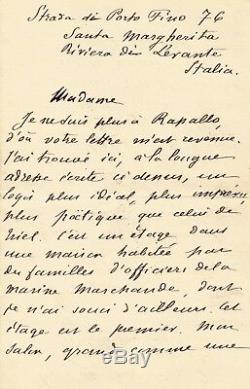 Strada di Porto Fino 76
Santa Margherita
Riviera di Levante
Italia.
Madame
Je ne suis plus à Rapallo,
d'où votre lettre m'est revenue.
J'ai trouvé ici, à la longue
adresse écrite ci dessus, un
logis plus idéal, plus imprévu,
plus poëtique que celui de
Kiel. C'est un étage dans
une maison habitée par
des familles d'officiers de la
marine Marchande, dont
je n'ai souci d'ailleurs. Cet
étage est le premier. Mon
salon, grand comme une